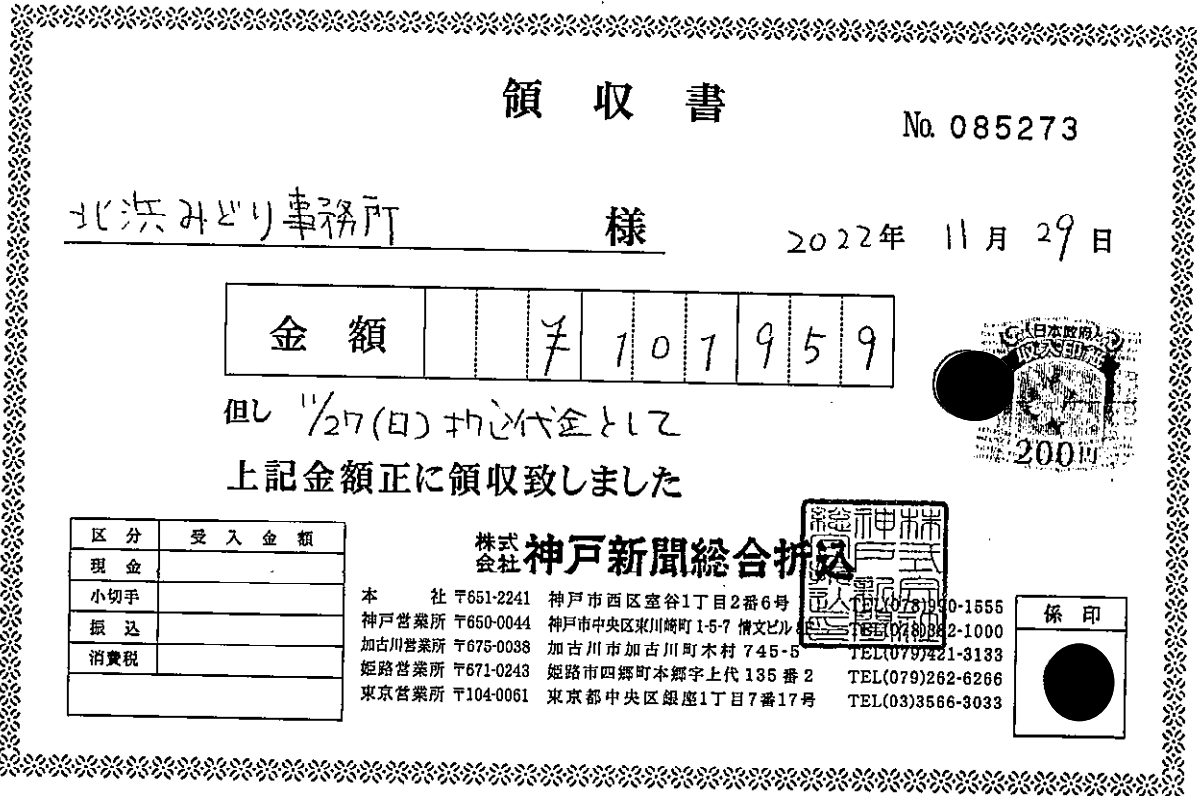 領収書
No. 085273
北浜みどり事務所 様
2022年 11月 29日
金額 ¥101959
但し 11/27(日)折込代金として
上記金額正に領収致しました
日本政府
収入印紙
200円
区分 受入金額
現金
小切手
振込
消費税
株式会社 神戸新聞総合折込
本社 〒651-2241 神戸市西区室谷1丁目2番6号 TEL(078)990-1555
神戸営業所 〒650-0044 神戸市中央区東川崎町1-5-7 情文ビル TEL(078)382-1000
加古川営業所 〒675-0038 加古川市加古川町木村745-5 TEL(079)421-3133
姫路営業所 〒671-0243 姫路市四郷町本郷字上代135番2 TEL(079)262-6266
東京営業所 〒104-0061 東京都中央区銀座1丁目7番17号 TEL(03)3566-3033
係印